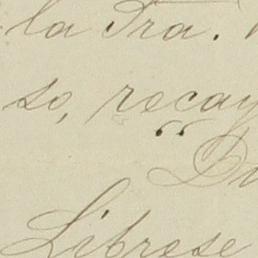 la Tra.
so, recay
"
Líbrese